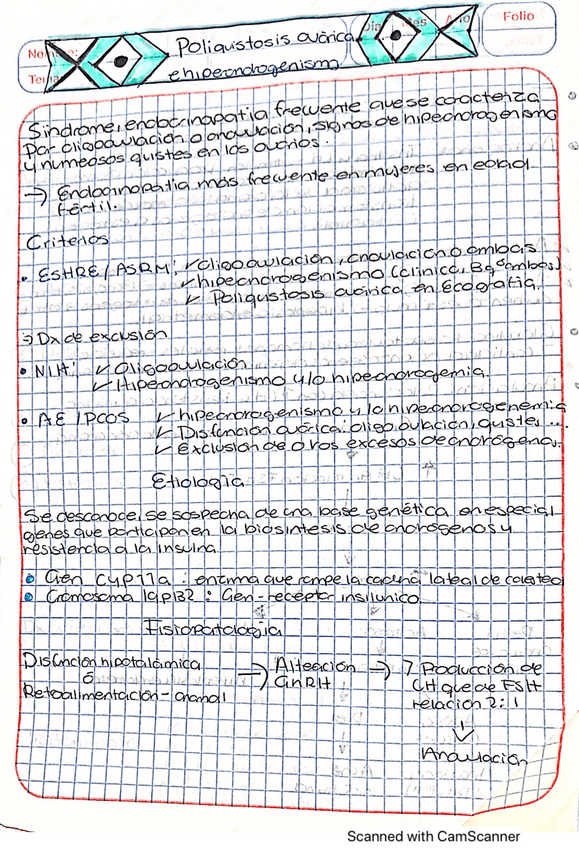 Nombre:
Tema:
Día Mes Año
Folio
Poliqustosis ovárica
e hiperandrogenismo
Síndrome, endocrinopatia frecuente que se caracteriza
Por oligoovulación o anovulación, signos de hiperandrogenismo
y numerosos quistes en los ovarios.
→ Endocrinopatia más frecuente en mujeres en edad
fértil.
Criterios
• ESHRE/ASRM: ✓ Oligoovulación, anovulación o ambas
✓ hiperandrogenismo (clínica, Bq o ambos)
✓ Poliqustosis ovárica en Ecografía.
→ Dx de exclusión
• NIH: ✓ Oligoovulación
✓ Hiperandrogenismo y/o hiperandrogemia.
• AE/PCOS ✓ hiperandrogenismo y/o hiperandrogenemia
✓ Disfunción ovárica: oligoovulación, quistes...
✓ Exclusión de otros excesos de andrógenos.
Etiología
Se desconoce, se sospecha de una base genética en especial
genes que participan en la biosíntesis de andrógenos y
resistencia a la insulina
• Gen Cyp11a : enzima que rompe la cadena lateral de colesterol
• Cromosoma 19p132 : Gen-receptor insulinico.
Fisiopatología
Disfunción hipotalámica
ó
Retroalimentación-anormal
→ Alteración
GnRH
→ ↑ Producción de
LH que de FSH
relación 2:1
↓
Anovulación
Scanned with CamScanner